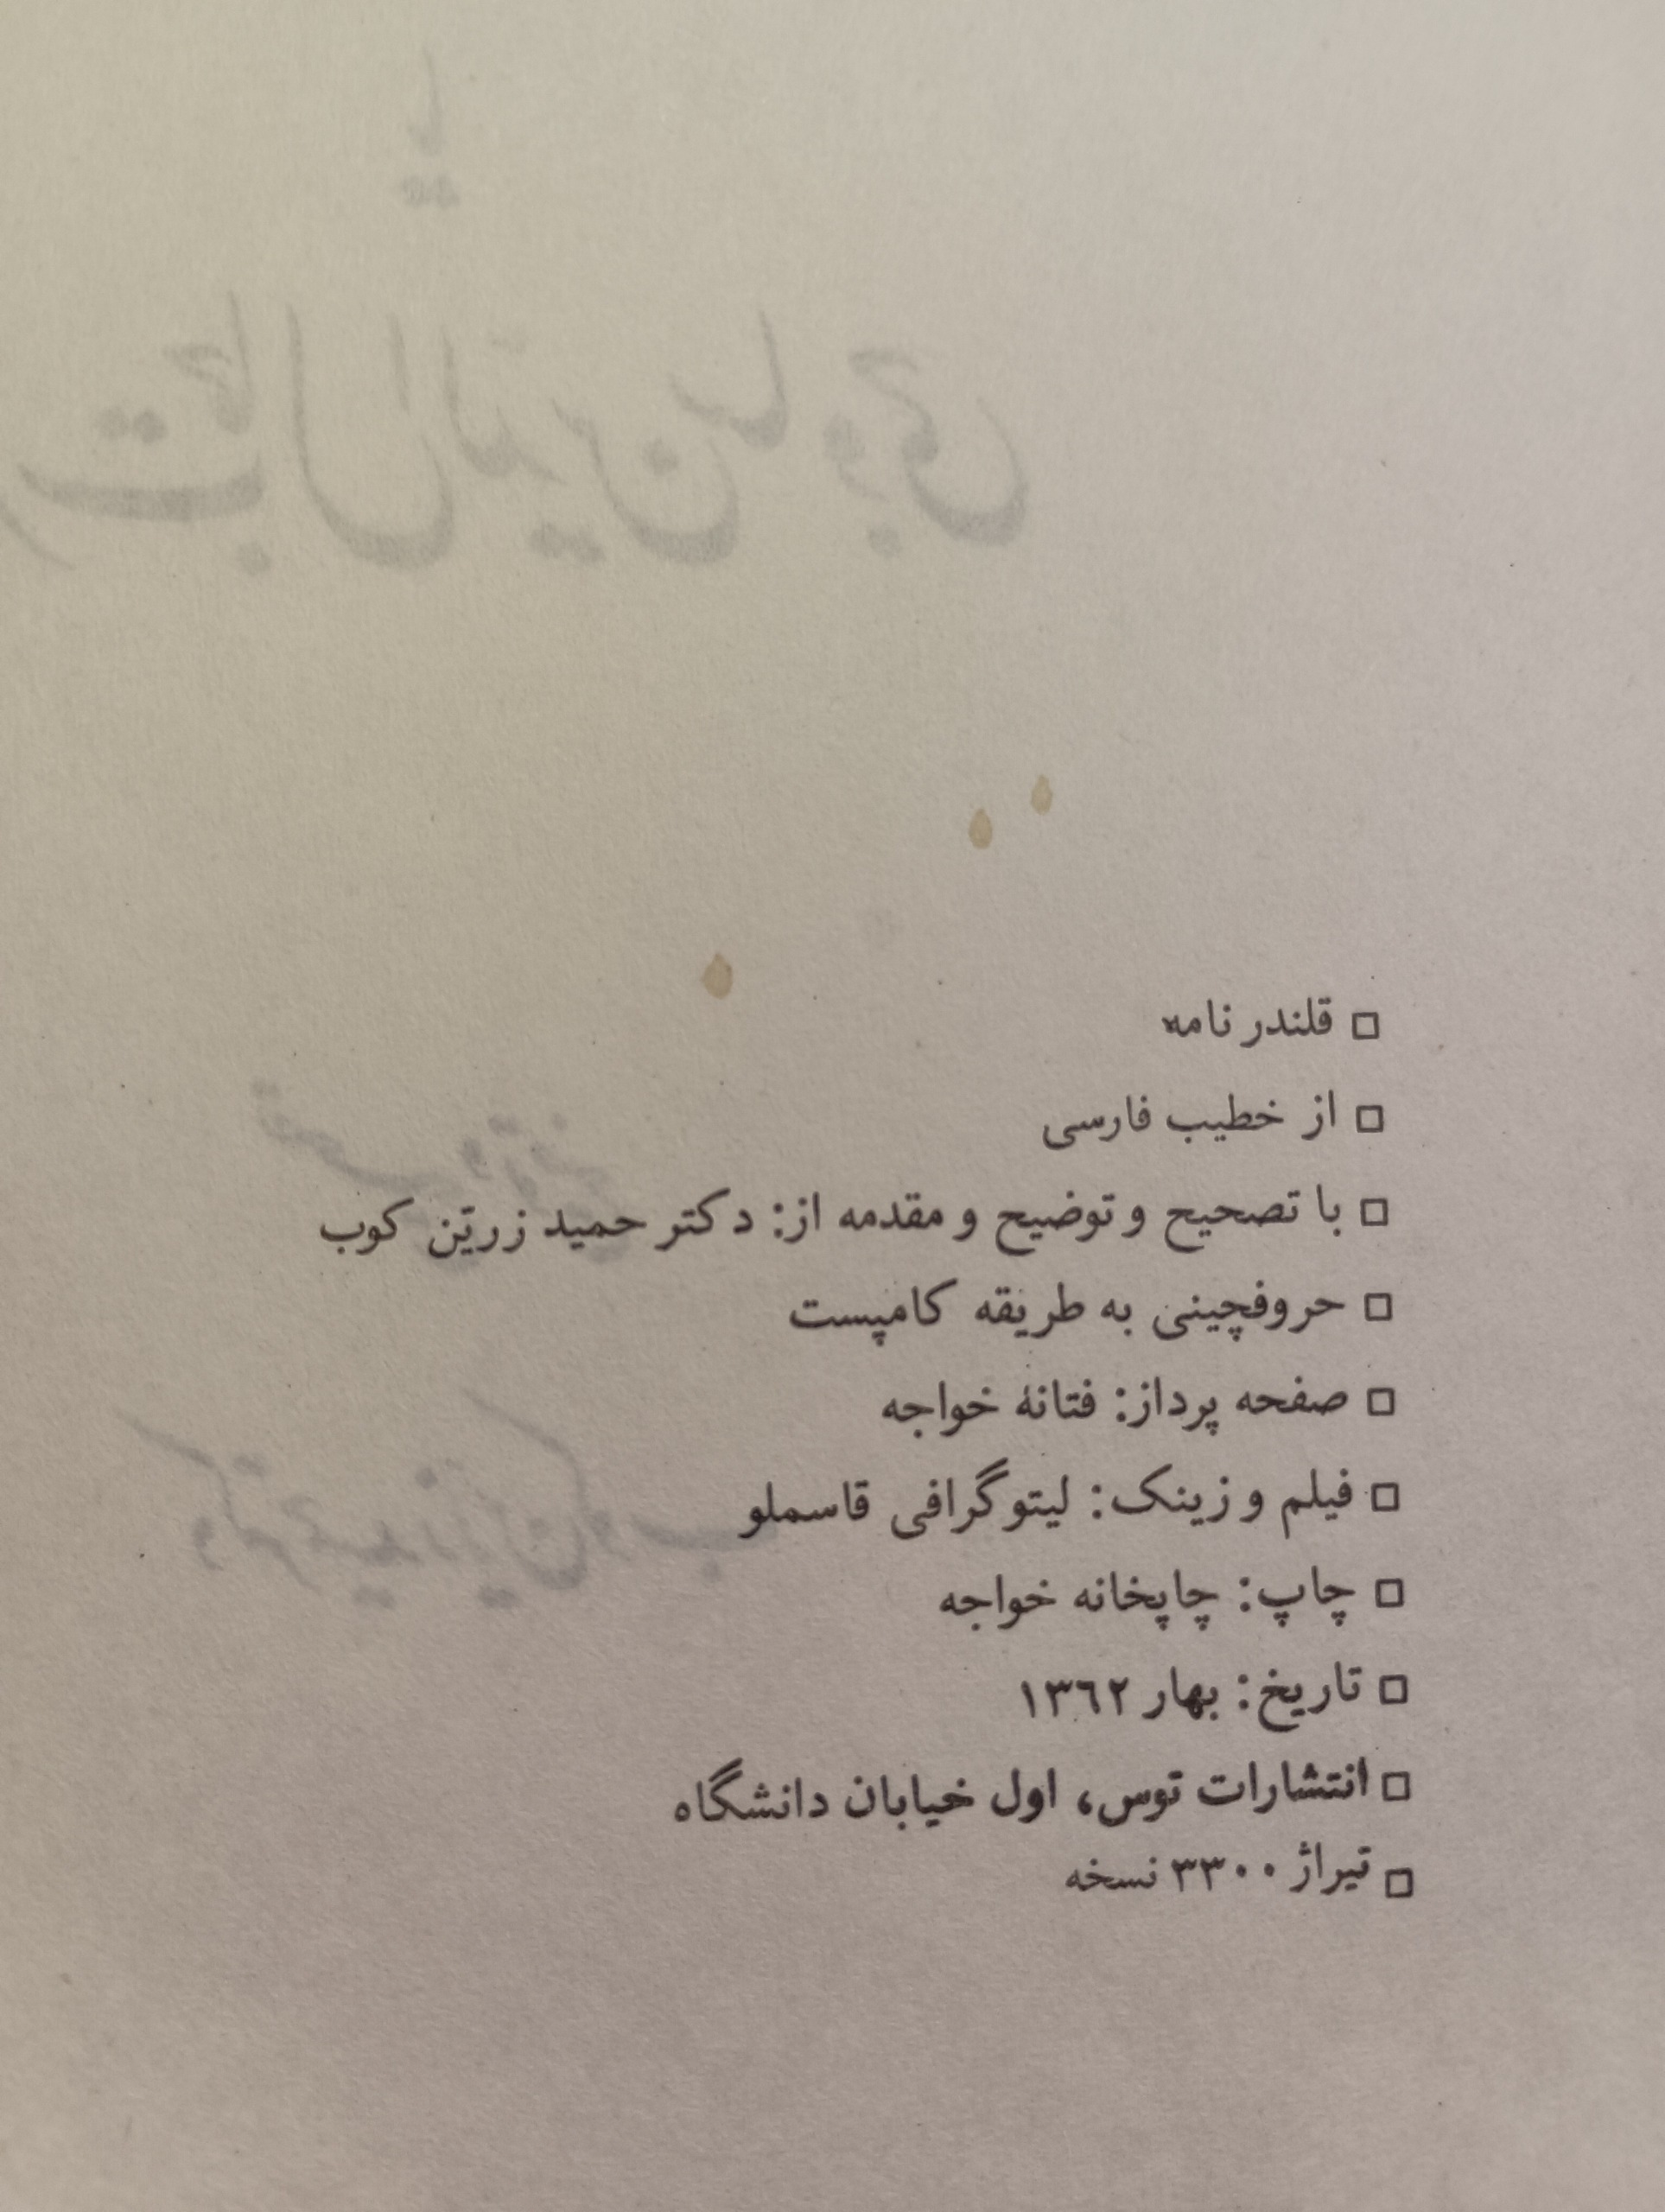 □ قلندر نامه
□ از خطیب فارسی
□ با تصحیح و توضیح و مقدمه از: دکتر حمید زرین کوب
□ حروفچینی به طریقه کامپست
□ صفحه پرداز: فتانۀ خواجه
□ فیلم و زینک: لیتوگرافی قاسملو
□ چاپ: چاپخانه خواجه
□ تاریخ: بهار ۱۳٦۲
□ انتشارات توس، اول خیابان دانشگاه
□ تیراژ ۳۳۰۰ نسخه